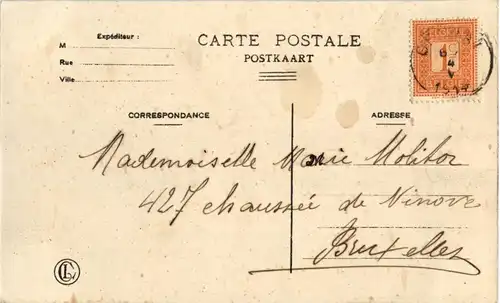 Expéditeur :
M
Rue
Ville
CARTE POSTALE
POSTKAART
1
CORRESPONDANCE
ADRESSE
Mademoiselle Marie Molitor
427 chaussée de Ninove
Bruxelles